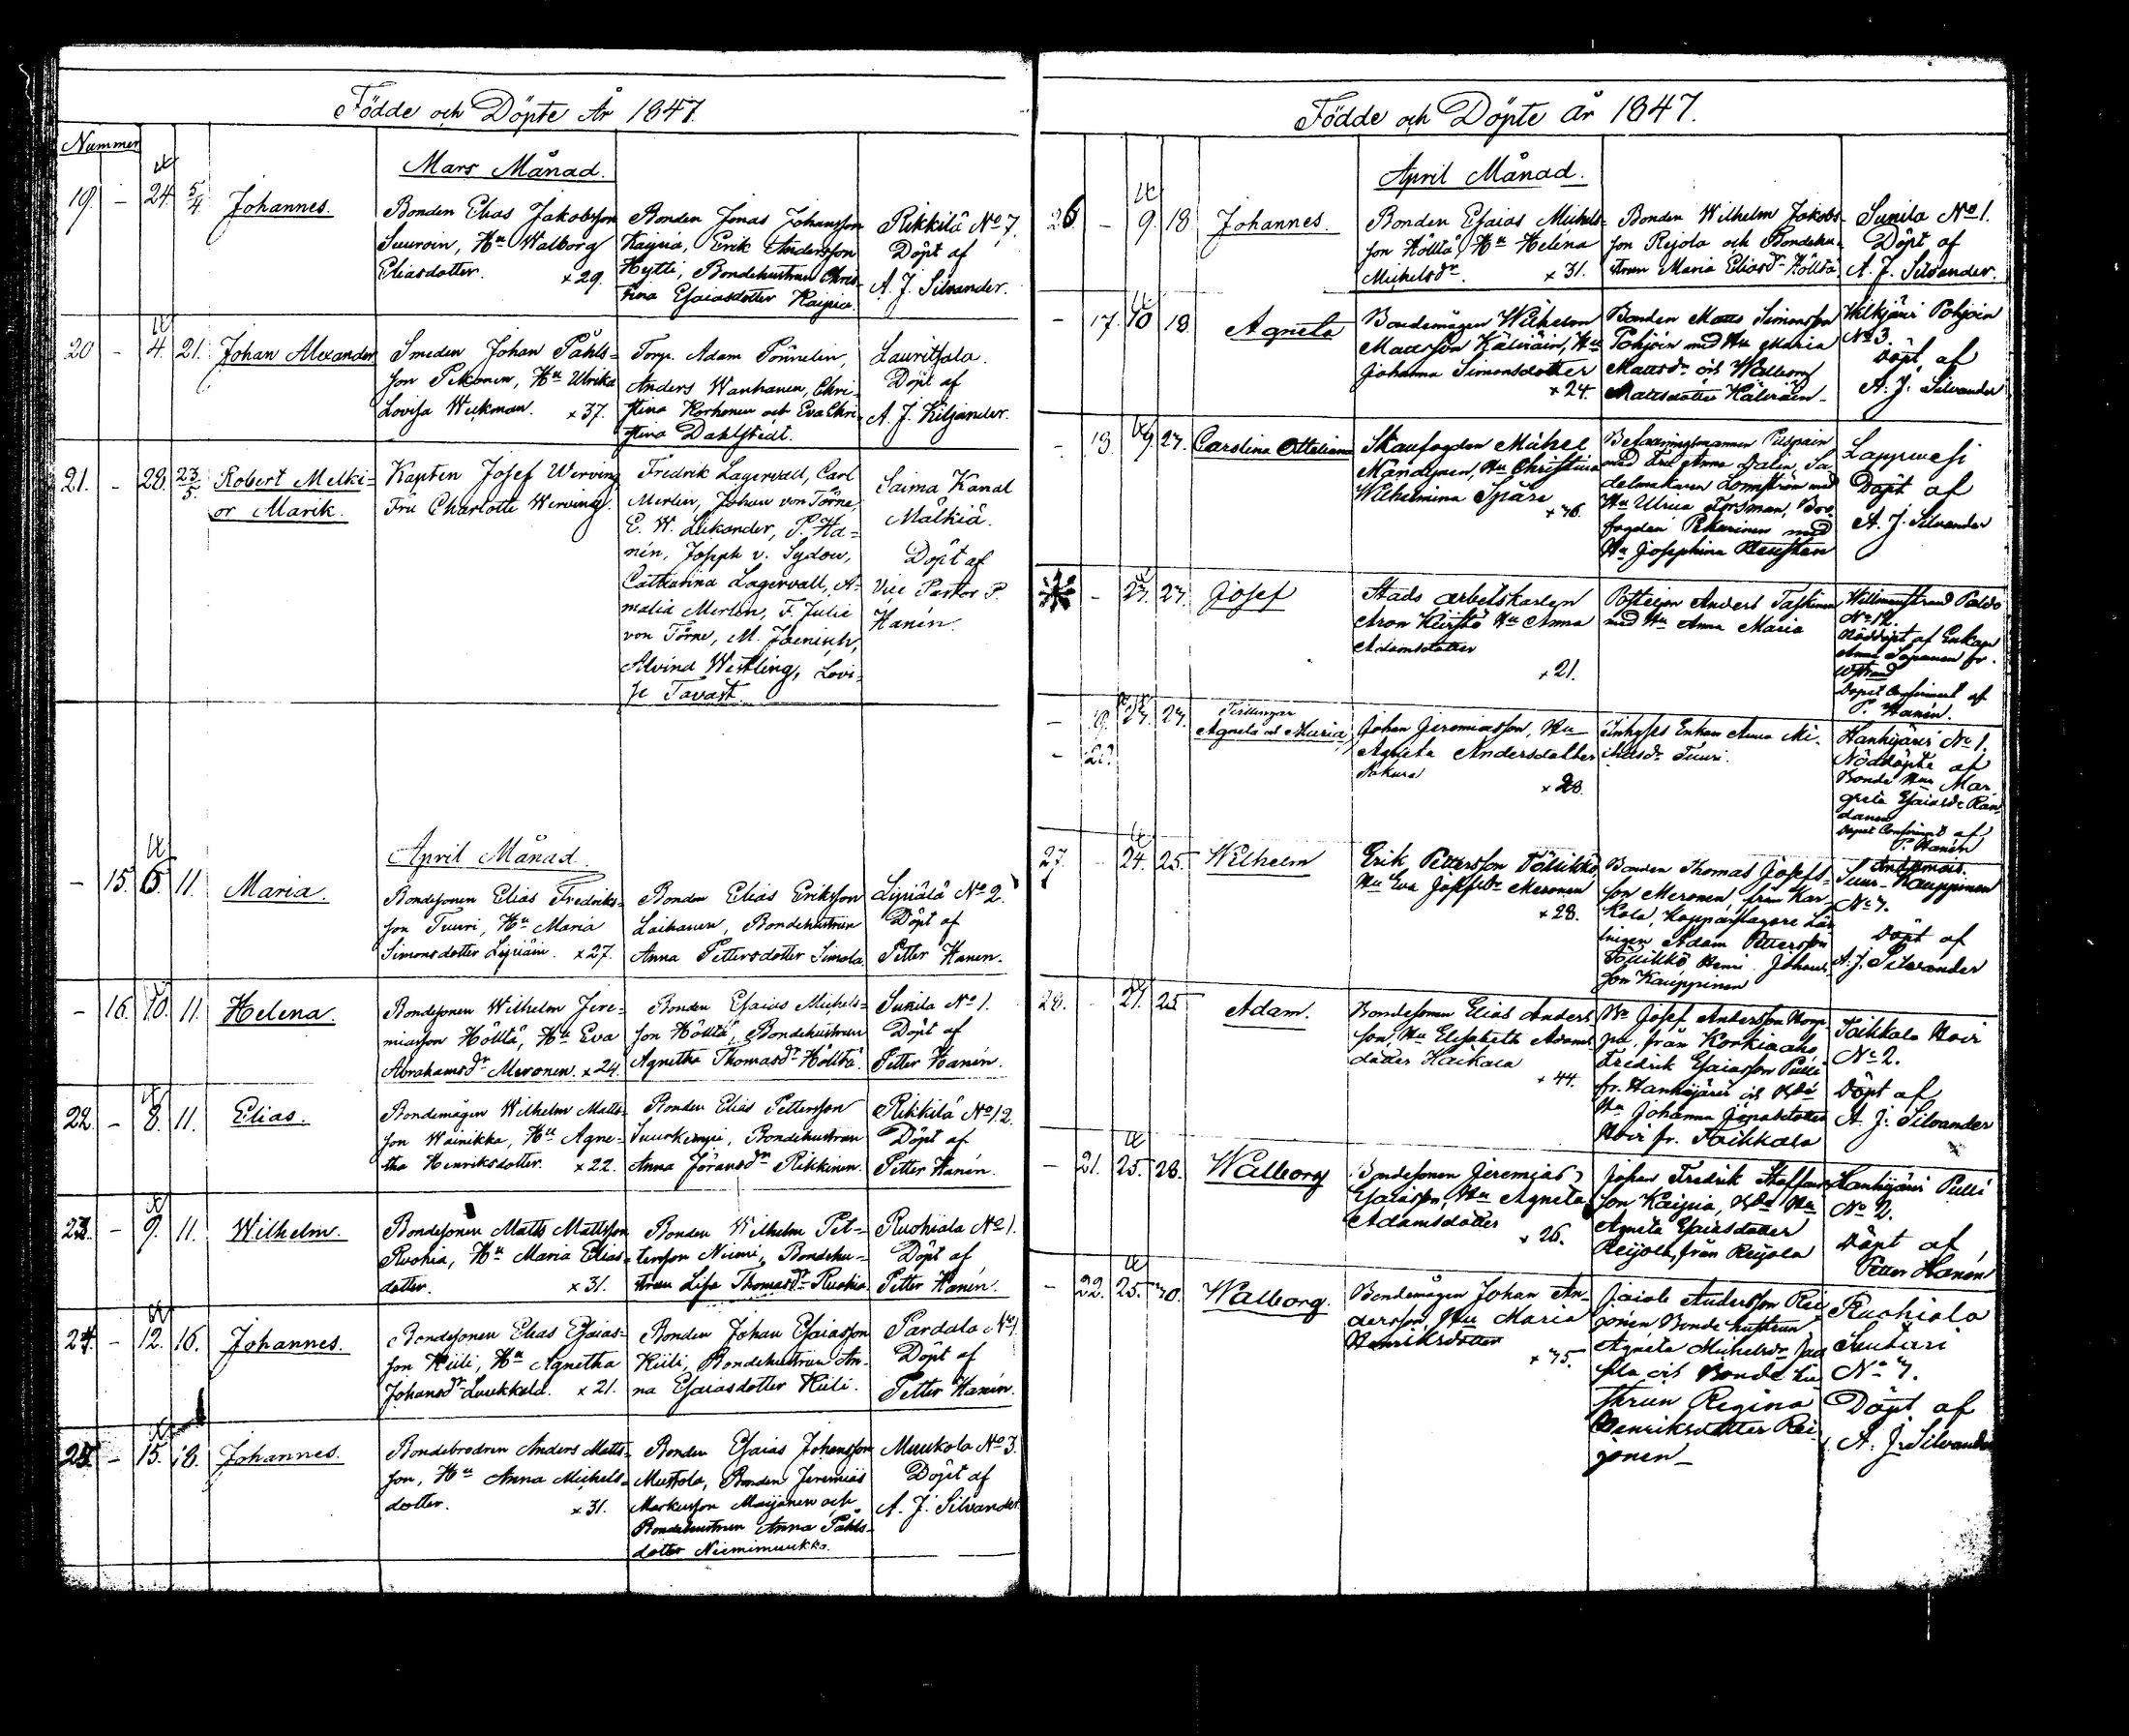 Födde och Döpte År 1847.
Nummer
Mars Månad.
19. - 24. 5/4 Johannes.
Bonden Elias Jakobsson
Suuroin, Hu Walborg
Eliasdotter. x 29.
Bonden Jonas Johansson
Kaijsia, Erik Andersson
Hytti, Bondehustrun Chris-
tina Esaiasdotter Kaijsia.
Rikkilä No 7.
Döpt af
A. J. Silvander.
20 - 4. 21. Johan Alexander
Smeden Johan Påhls-
son Pekonen, Hu Ulrika
Lovisa Weckman. x 37.
Torp. Adam Pönnelin,
Anders Wanhanen, Chri-
stina Korhonen och Eva Chri-
stina Dahlstedt.
Lauritsala.
Döpt af
A. J. Kiljander.
21. - 28. 23/5 Robert Melki-
or Marik.
Kapten Josef Werving
Fru Charlotte Werving.
Fredrik Lagervall, Carl
Merlin, Johan von Törne,
E. W. Leikander, P. Ha-
nén, Joseph v. Sydow,
Catharina Lagervall, A-
malia Merlin, F. Julie
von Törne, M. Jaenisch,
Alvina Westling, Lovi-
se Tavast.
Saima Kanal
Mälkiä.
Döpt af
Vice Pastor P.
Hanén.
April Månad.
- 15. 5. 11. Maria.
Bondesonen Elias Fredriks-
son Tuuri, Hu Maria
Simonsdotter x 27.
Bonden Elias Eriksson
Laihanen, Bondehustrun
Anna Pettersdotter Simola.
No 2.
Döpt af
Petter Hanén.
- 16. 10. 11. Helena.
Bondesonen Wilhelm Jere-
miasson Höltta, Hu Eva
Abrahamsdr Meronen. x 24.
Bonden Esaias Michels-
son Hölttä, Bondehustrun
Agnetha Thomasdr Hölttä.
Sunila No 1.
Döpt af
Petter Hanén.
22. - 8. 11. Elias.
Bondemågen Wilhelm Matts-
son Wainikka, Hu Agne-
tha Henriksdotter. x 22.
Bonden Elias Pettersson
Suurkempi, Bondehustrun
Anna Jöransdr Rikkinen.
Rikkilä No 12.
Döpt af
Petter Hanén.
23. - 9. 11. Wilhelm.
Bondesonen Matts Mattsson
Ruohia, Hu Maria Elias-
dotter. x 31.
Bonden Wilhelm Pet-
tersson Niemi, Bondehu-
strun Lisa Thomasdr Ruohia
Ruohiala No 1.
Döpt af
Petter Hanén.
24. - 12. 16. Johannes.
Bondesonen Elias Esaias-
son Kiili, Hu Agnetha
Johansdr Luukkala. x 21.
Bonden Johan Esaiasson
Kiili, Bondehustrun An-
na Esaiasdotter Kiili.
Pardala No 1
Döpt af
Petter Hanén.
25. - 15. 18. Johannes.
Bondebrodren Anders Matts-
son, Hu Anna Michels-
dotter. x 31.
Bonden Esaias Johansson
Mustola, Bonden Jeremias
Markusson Maijanen och
Bondehustrun Anna Påhls-
dotter Niemimuukka.
Muukola No 3.
Döpt af
A. J. Silvander.
Födde och Döpte år 1847.
April Månad.
26 - 9. 18 Johannes.
Bonden Esaias Michels-
son Hölttä, Hu Helena
Michelsdr. x 31.
Bonden Wilhelm Jakobs-
son Rejola och Bondehu-
strun Maria Eliasdr Hölttä
Sunila No 1.
Döpt af
A. J. Silvander.
- 17. 10 18 Agneta
Bondemågen Wilhelm
Mattsson Käkiäin, Hu
Johanna Simonsdotter
x 24.
Bonden Matts Simonsson
Pohjoin med Hu Maria
Mattsdr och Walborg
Mattsdotter
Wilkjärvi Pohjoin
No 3.
Döpt af
A. J. Silvander
- 18. 9. 27. Carolina Ottiliana
Skaufogden Mickel
Hu Christina
Wilhelmina Spåre
x 36.
med Fru Anna Dalin, Sa-
delmakaren Lönnström med
Hu Ulrica Forsman, Bro-
fogden Pekarinen med
Hu Josephina
Lappvesi
Döpt af
A. J. Silvander
- 27. 27. Josef
Stads arbetskarlen
Aron Hu Anna
Adamsdotter
x 21.
Anders Taskinen
med Hu Anna Maria
Willmanstrand
No 12.
Nöddöpt af Enkan
Anna
Döpet Confirmerat af
P. Hanén.
- 19. 27. 27. Tvillingar
Agneta och Maria
- 20.
Johan Jeremiasson, Hu
Agneta Andersdotter
x 28.
Inhyses Enkan Anna Mi-
chelsdr Tuuri.
Hanhijärvi No 1.
Nöddöpte af
Bonde Hu Mar-
greta Esaiasdr Ran-
danen
Döpet Confirmerat af
P. Hanén
27. - 24. 25. Wilhelm
Erik Pettersson Töllikkö
Hu Eva Josefsdr Meronen
x 28.
Bonden Thomas Josefs-
son Meronen, från Kar-
kola, Kopparslagare Lär-
lingen Adam Pettersson
Töllikkö Johans-
son Kauppinen
Suur-Kauppinen
No 7.
Döpt af
A. J. Silvander
28. - 21. 25 Adam.
Bondesonen Elias Anders-
son, Hu Elisabeth Adams-
dotter Haikala
x 44.
Josef Andersson
från Korkiaaho,
Fredrik Esaiasson Pulli
fr. Hanhijärvi och
Hu Johanna
Hoir fr. Toikkala
Toikkala Hoir
No 2.
Döpt af
A. J. Silvander
- 21. 25. 26. Walborg
Bondesonen Jeremias
Esaiasson, Hu Agneta
Adamsdotter
x 26.
Johan Fredrik Staffans-
son Kaijsia,
Agneta Esaiasdotter
Reijola, från Reijola
Hanhijärvi Pulli
No 2.
Döpt af
Petter Hanén
- 22. 25. 30. Walborg.
Bondemågen Johan An-
dersson, Hu Maria
Henriksdotter
x 35.
Andersson Rei-
jonen Bonde hustrun
Agneta Michelsdr
och Bonde hu-
strun Regina
Henriksdotter Rei-
jonen
Ruohiola
Suutari
No 7.
Döpt af
A. J. Silvander